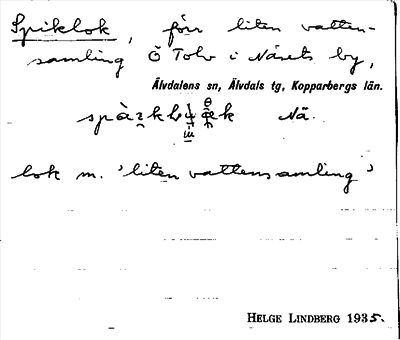 Spiklok, förr liten vatten-
samling Ö Tolv i Näsets by,
Älvdalens sn, Älvdals tg, Kopparbergs län.
Nä.
lok m. 'liten vattensamling'
HELGE LINDBERG 1935.